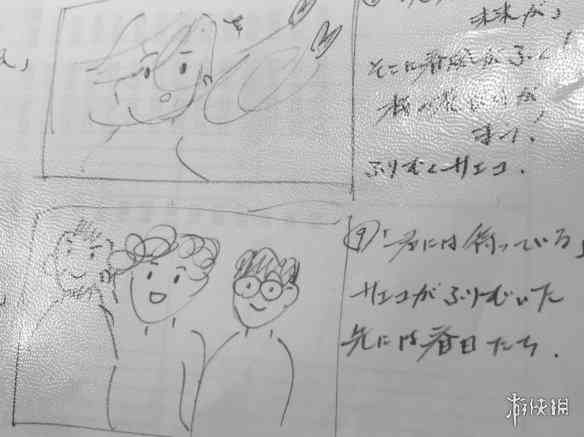 未来が」
そこに春風がふく!
桜の花びらが
まう!
ふりむくサエコ.
⑨「君には待っている」
サエコがふりむいた
先には春日たち.
游侠網